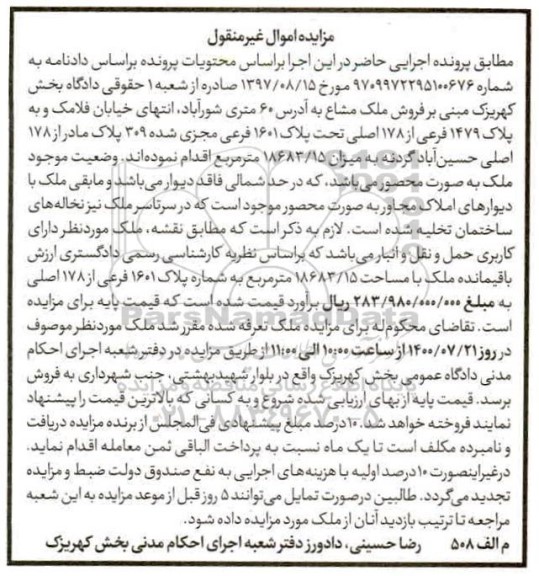 مزایده اموال غیرمنقول
مطابق پرونده اجرایی حاضر در این اجرا براساس محتویات پرونده براساس دادنامه به
شماره ۹۷۰۹۹۷۲۲۹۵۱۰۰۶۷۶ مورخ ۱۳۹۷/۰۸/۱۵ صادره از شعبه ۱ حقوقی دادگاه بخش
کهریزک مبنی بر فروش ملک مشاع به آدرس ۶۰ متری شورآباد، انتهای خیابان فلامک و به
پلاک ۱۴۷۹ فرعی از ۱۷۸ اصلی تحت پلاک ۱۶۰۱ فرعی مجزی شده ۳۰۹ پلاک مادر از ۱۷۸
اصلی حسین‌آباد گردنه به میزان ۱۸۶۸۳/۱۵ مترمربع اقدام نموده‌اند. وضعیت موجود
ملک به صورت محصور می‌باشد، که در حد شمالی فاقد دیوار می‌باشد و مابقی ملک با
دیوارهای املاک مجاور به صورت محصور موجود است که در سرتاسر ملک نیز نخاله‌های
ساختمان تخلیه شده است. لازم به ذکر است که مطابق نقشه، ملک موردنظر دارای
کاربری حمل و نقل و انبار می‌باشد که براساس نظریه کارشناسی رسمی دادگستری ارزش
باقیمانده ملک با مساحت ۱۸۶۸۳/۱۵ مترمربع به شماره پلاک ۱۶۰۱ فرعی از ۱۷۸ اصلی
به مبلغ ۲۸۳/۹۸۰/۰۰۰/۰۰۰ ریال برآورد قیمت شده است که قیمت پایه برای مزایده
است. تقاضای محکوم‌له برای مزایده ملک تعرفه شده مقرر شد ملک موردنظر موصوف
در روز ۱۴۰۰/۰۷/۲۱ از ساعت ۱۰:۰۰ الی ۱۱:۰۰ از طریق مزایده در دفتر شعبه اجرای احکام
مدنی دادگاه عمومی بخش کهریزک واقع در بلوار شهید بهشتی، جنب شهرداری به فروش
برسد. قیمت پایه از بهای ارزیابی شده شروع و به کسانی که بالاترین قیمت را پیشنهاد
نمایند فروخته خواهد شد. ۱۰درصد مبلغ پیشنهادی فی‌المجلس از برنده مزایده دریافت
و نامبرده مکلف است تا یک ماه نسبت به پرداخت الباقی ثمن معامله اقدام نماید.
درغیراینصورت ۱۰درصد اولیه با هزینه‌های اجرایی به نفع صندوق دولت ضبط و مزایده
تجدید می‌گردد. طالبین درصورت تمایل می‌توانند ۵ روز قبل از موعد مزایده به این شعبه
مراجعه تا ترتیب بازدید آنان از ملک مورد مزایده داده شود.
م الف ۵۰۸ رضا حسینی، دادورز دفتر شعبه اجرای احکام مدنی بخش کهریزک
ParsNamadData